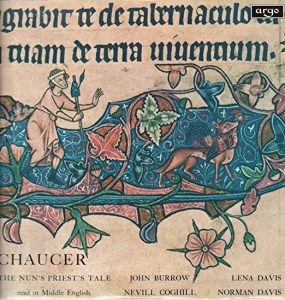 argo
grabit te de tabernaculo
tuam de terra uiuentium.
CHAUCER
THE NUN'S PRIEST'S TALE
JOHN BURROW
LENA DAVIS
read in Middle English
NEVILL COGHILL
NORMAN DAVIS